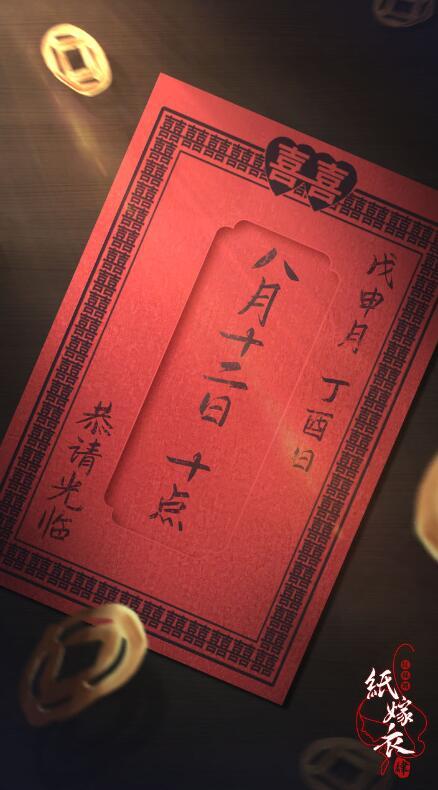 喜喜
戊申月 丁酉日
八月十二日 十点
恭请光临
紙嫁衣
肆